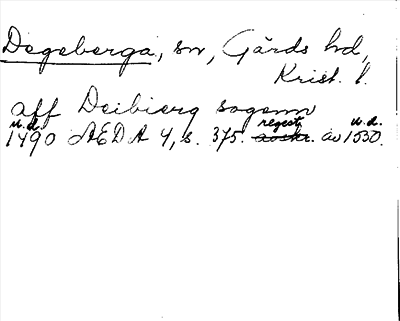 Degeberga, sn, Gärds hd,
Krist. l.
aff Deibierg sogenn
u.d.
1490 AEDA 4, s. 375. regest avskr. av u.d. 1530.